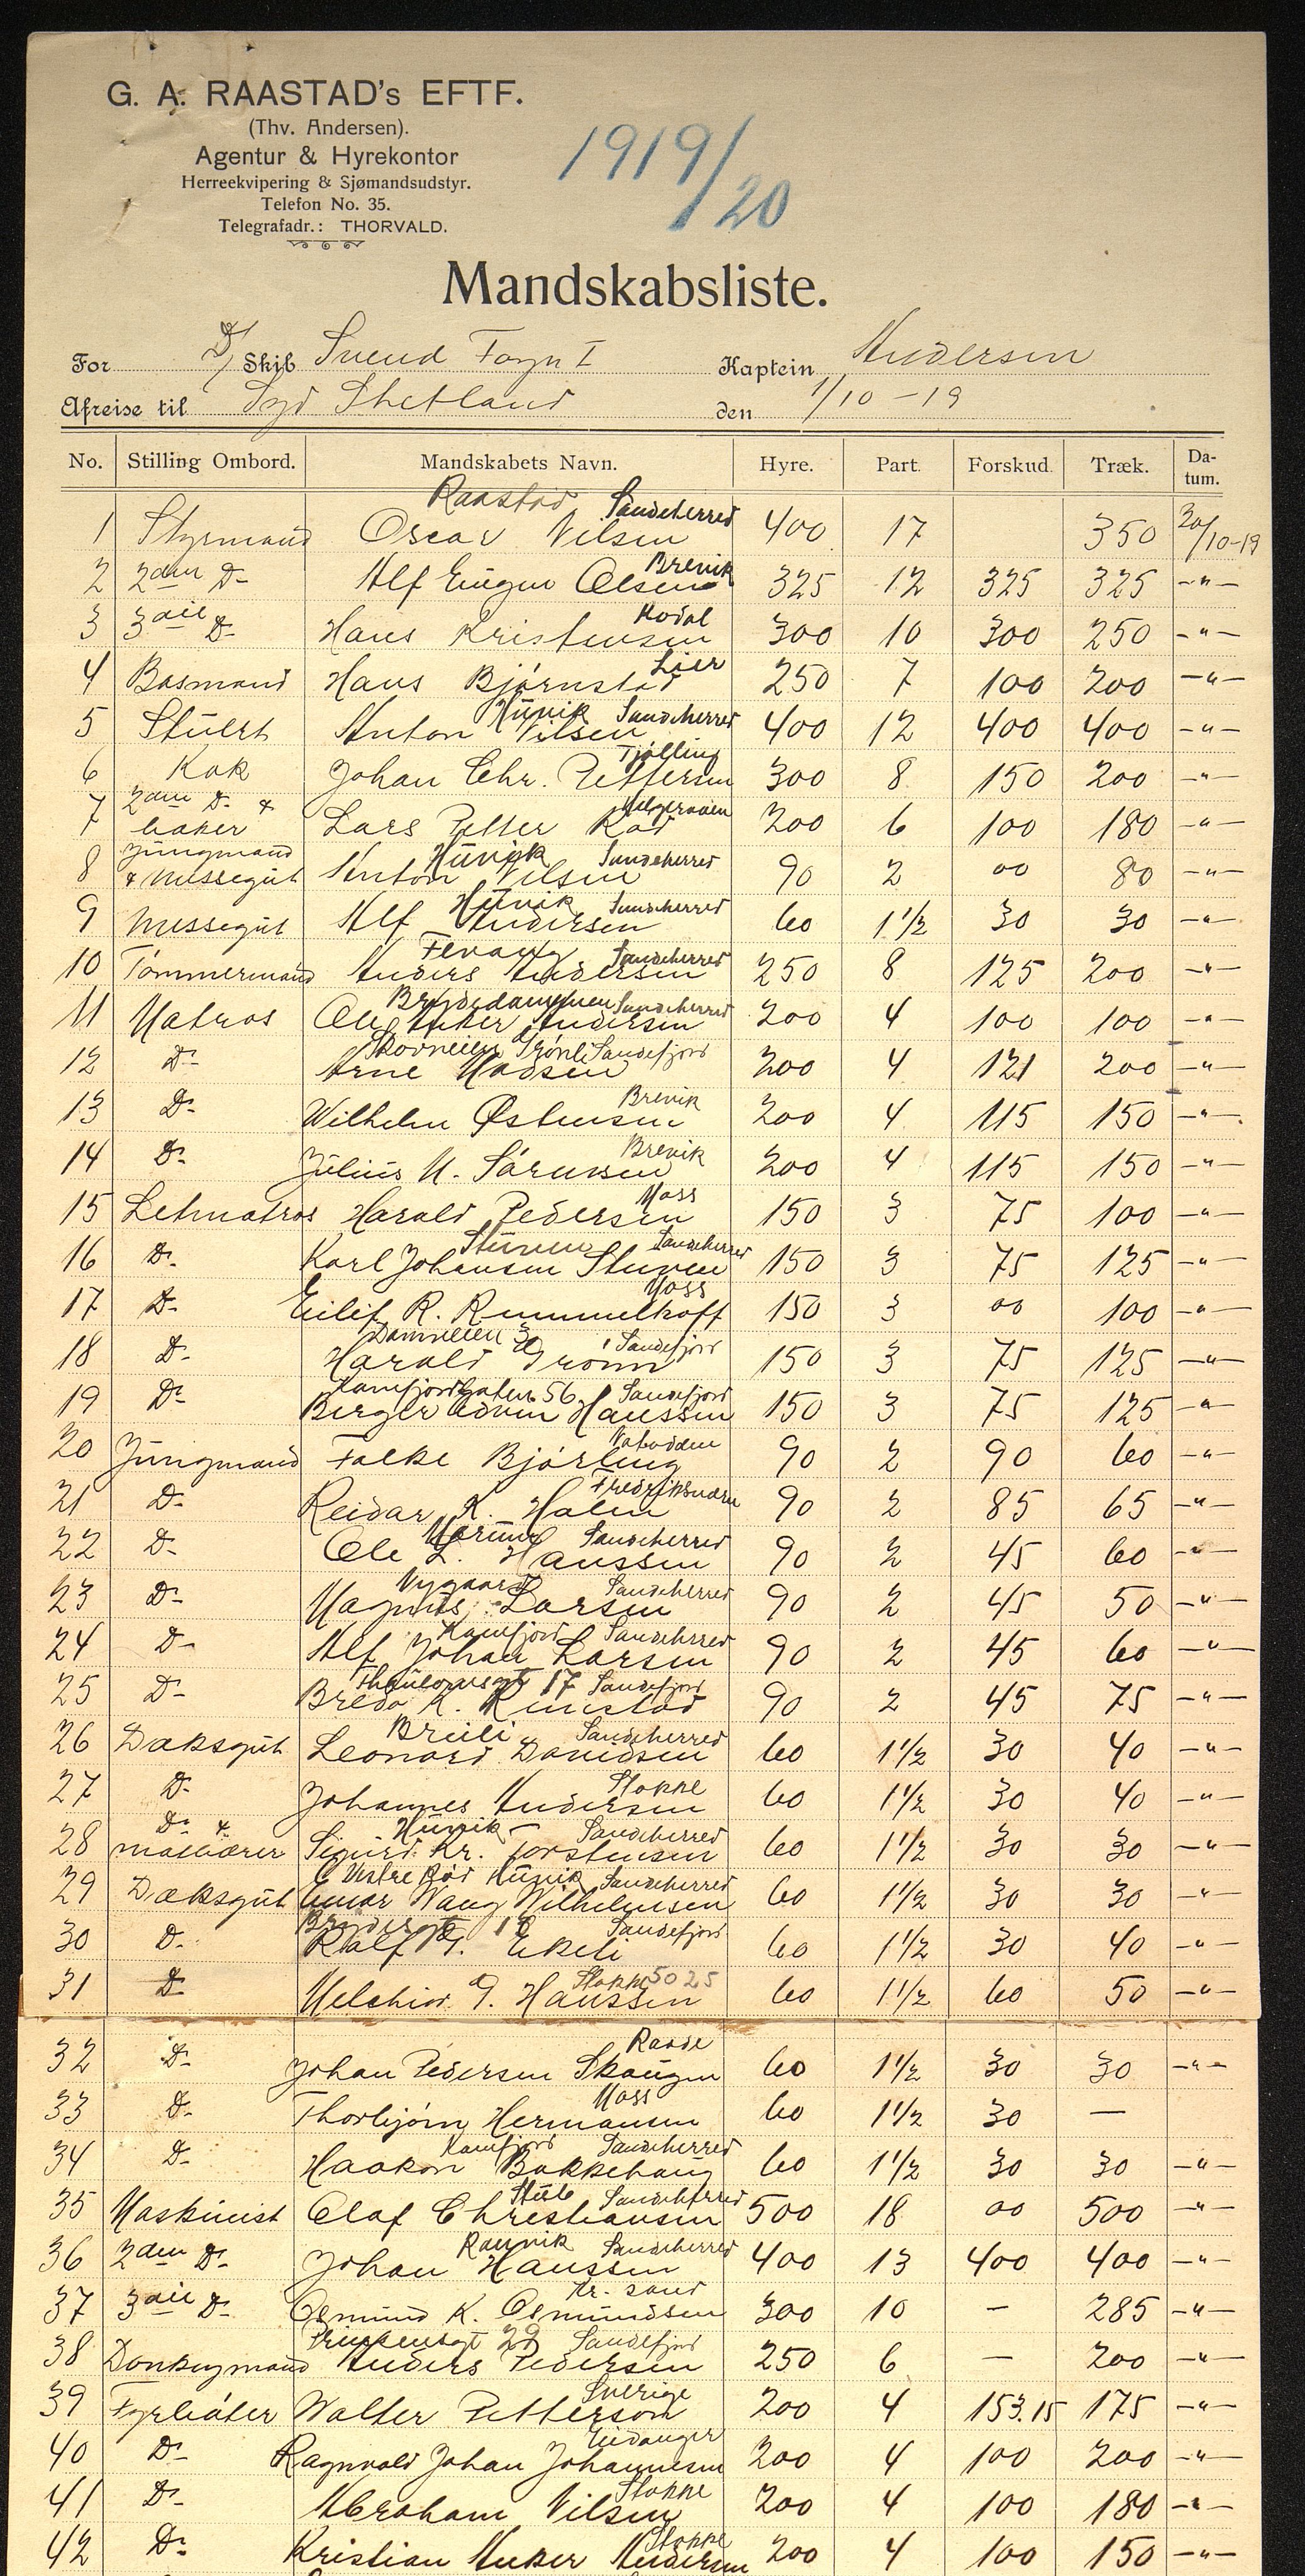 G. A. RAASTAD's EFTF.
(Thv. Andersen).
Agentur & Hyrekontor
Herreekvipering & Sjømandsudstyr.
Telefon No. 35.
Telegrafadr.: THORVALD.
1919/20
Mandskabsliste.
For D/ Skib Svend Foyn I Kaptein Andersen
Afreise til Syd Shetland den 1/10-19
No. Stilling Ombord. Mandskabets Navn. Hyre. Part. Forskud. Træk. Datum.
Raastad Sandeherred
1 Styrmand Oscar Nilsen 400 17 350 20/10-19
Brevik
2 2den Do Alf Eugen Olsen 325 12 325 325 -"-
Kodal
3 3die Do Hans Kristensen 300 10 300 250 -"-
Lier
4 Basmand Hans Bjørnstad 250 7 100 200 -"-
Hunvik Sandeherred
5 Stuert Anton Nilsen 400 12 400 400 -"-
Tjølling
6 Kok Johan Chr. Pettersen 300 8 150 200 -"-
2den Do &
Helgeroaen
7 baker Lars Petter Rød 200 6 100 180 -"-
Jungmand Hunvik Sandeherred
8 & Messegut Anton Nilsen 90 2 00 80 -"-
Hunvik Sandeherred
9 Messegut Alf Andersen 60 1 1/2 30 30 -"-
Fevang Sandeherred
10 Tømmermand Anders Andersen 250 8 125 200 -"-
Bryddedammen Sandeherred
11 Matros Ole Anker Andersen 200 4 100 100 -"-
Skovveien Grønli Sandefjord
12 Do Arne Madsen 200 4 121 200 -"-
Brevik
13 Do Wilhelm Østensen 200 4 115 150 -"-
Brevik
14 Do Julius M. Sørensen 200 4 115 150 -"-
Moss
15 Letmatros Harald Pedersen 150 3 75 100 -"-
Stuven Sandeherred
16 Do Karl Johansen Stuven 150 3 75 125 -"-
Moss
17 Do Eilif R. Rummelhoff 150 3 00 100 -"-
Damveien 3 Sandefjord
18 Do Harald Grønn 150 3 75 125 -"-
Kamfjordgaten 56 Sandefjord
19 Do Birger Edvin Hanssen 150 3 75 125 -"-
Notodden
20 Jungmand Folke Bjørling 90 2 90 60 -"-
Fredriksværn
21 Do Reidar K. Holm 90 2 85 65 -"-
Sandeherred
22 Do Ole L. Hanssen 90 2 45 60 -"-
Nygaard Sandeherred
23 Do Magnus Larsen 90 2 45 50 -"-
Kamfjord Sandeherred
24 Do Alf Johan Larsen 90 2 45 60 -"-
Thaulowsgt 17 Sandefjord
25 Do Bredo K. Rimstad 90 2 45 75 -"-
Breili Sandeherred
26 Dæksgut Leonard Davidsen 60 1 1/2 30 40 -"-
Stokke
27 Do Johannes Andersen 60 1 1/2 30 40 -"-
Do & Hunvik - Sandeherred
28 matbærer Sigurd Kr. Torstensen 60 1 1/2 30 30 -"-
Vestre Rød Hunvik Sandeherred
29 Dæksgut Einar Wang Wilhelmsen 60 1 1/2 30 30 -"-
Sandefjord
30 Do Ralf T. Ekeli 60 1 1/2 30 40 -"-
Stokke 5025
31 Do Melchior G. Hanssen 60 1 1/2 60 50 -"-
Raade
32 Do Johan Pedersen Skaugen 60 1 1/2 30 30 -"-
Moss
33 Do Thorbjørn Hermansen 60 1 1/2 30 —
Kamfjord Sandeherred
34 Do Haakon Bakkehaug 60 1 1/2 30 30 -"-
Stub Sandeherred
35 Maskinist Olaf Christiansen 500 18 00 500 -"-
Ranvik Sandeherred
36 2den Do Johan Hanssen 400 13 400 400 -"-
Kr. sand
37 3die Do Osmund K. Osmundsen 300 10 — 285 -"-
Prinsensgt 29 Sandefjord
38 Donkeymand Anders Pedersen 250 6 — 200 -"-
Sverige
39 Fyrbøter Walter Petterson 200 4 153.15 175 -"-
Eidanger
40 Do Ragnvald Johan Johannesen 200 4 100 200 -"-
Stokke
41 Do Abraham Nilsen 200 4 100 180 -"-
Stokke
42 Do Kristian Anker Andersen 200 4 100 150 -"-